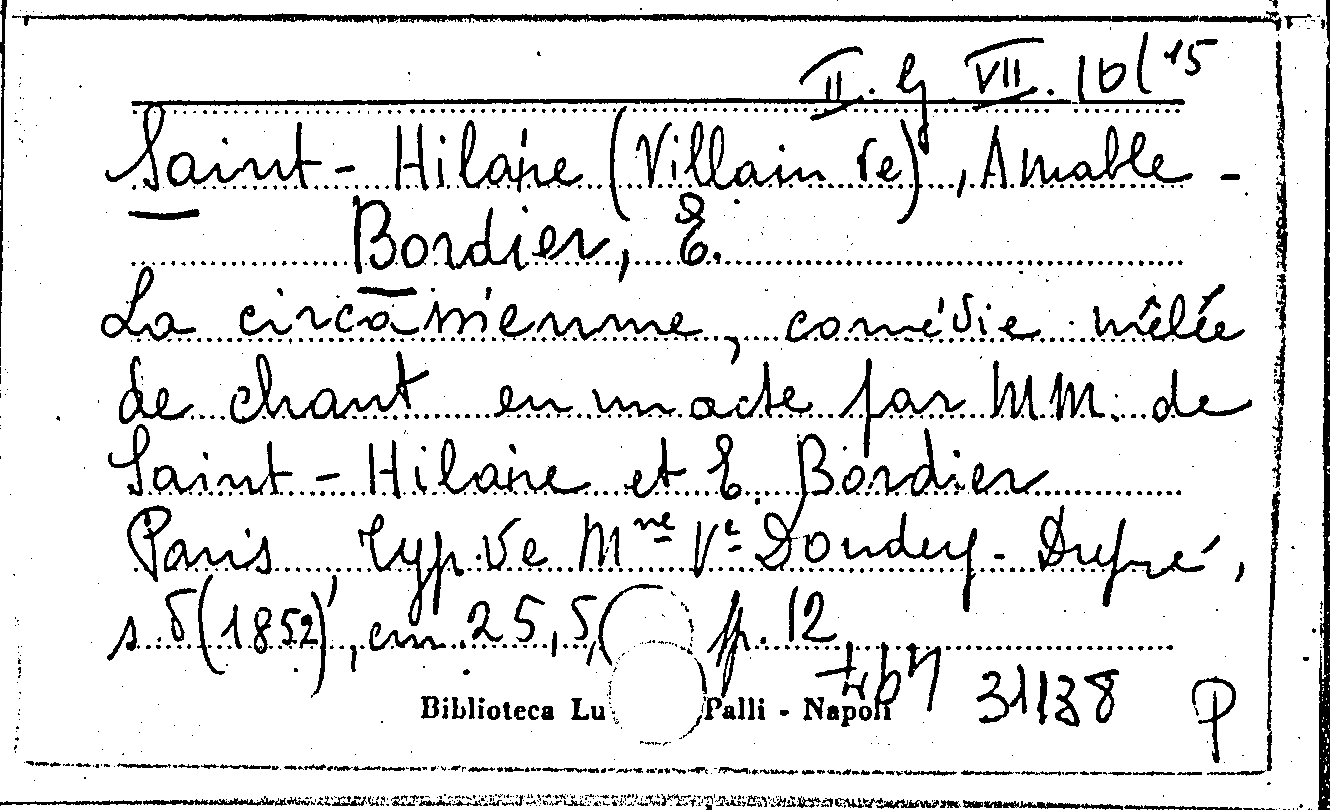 II. G VII. 10(15
Saint-Hilaire (Villain de), Amable -
Bordier, E.
La circassienne, comédie mêlée
de chant en un acte par MM. de
Saint-Hilaire et E. Bordier
Paris, typ. de Mme Ve Dondey-Dupré,
s. d (1852), cm. 25,5, p. 12
Biblioteca Lu Palli - Napoli 31138 P